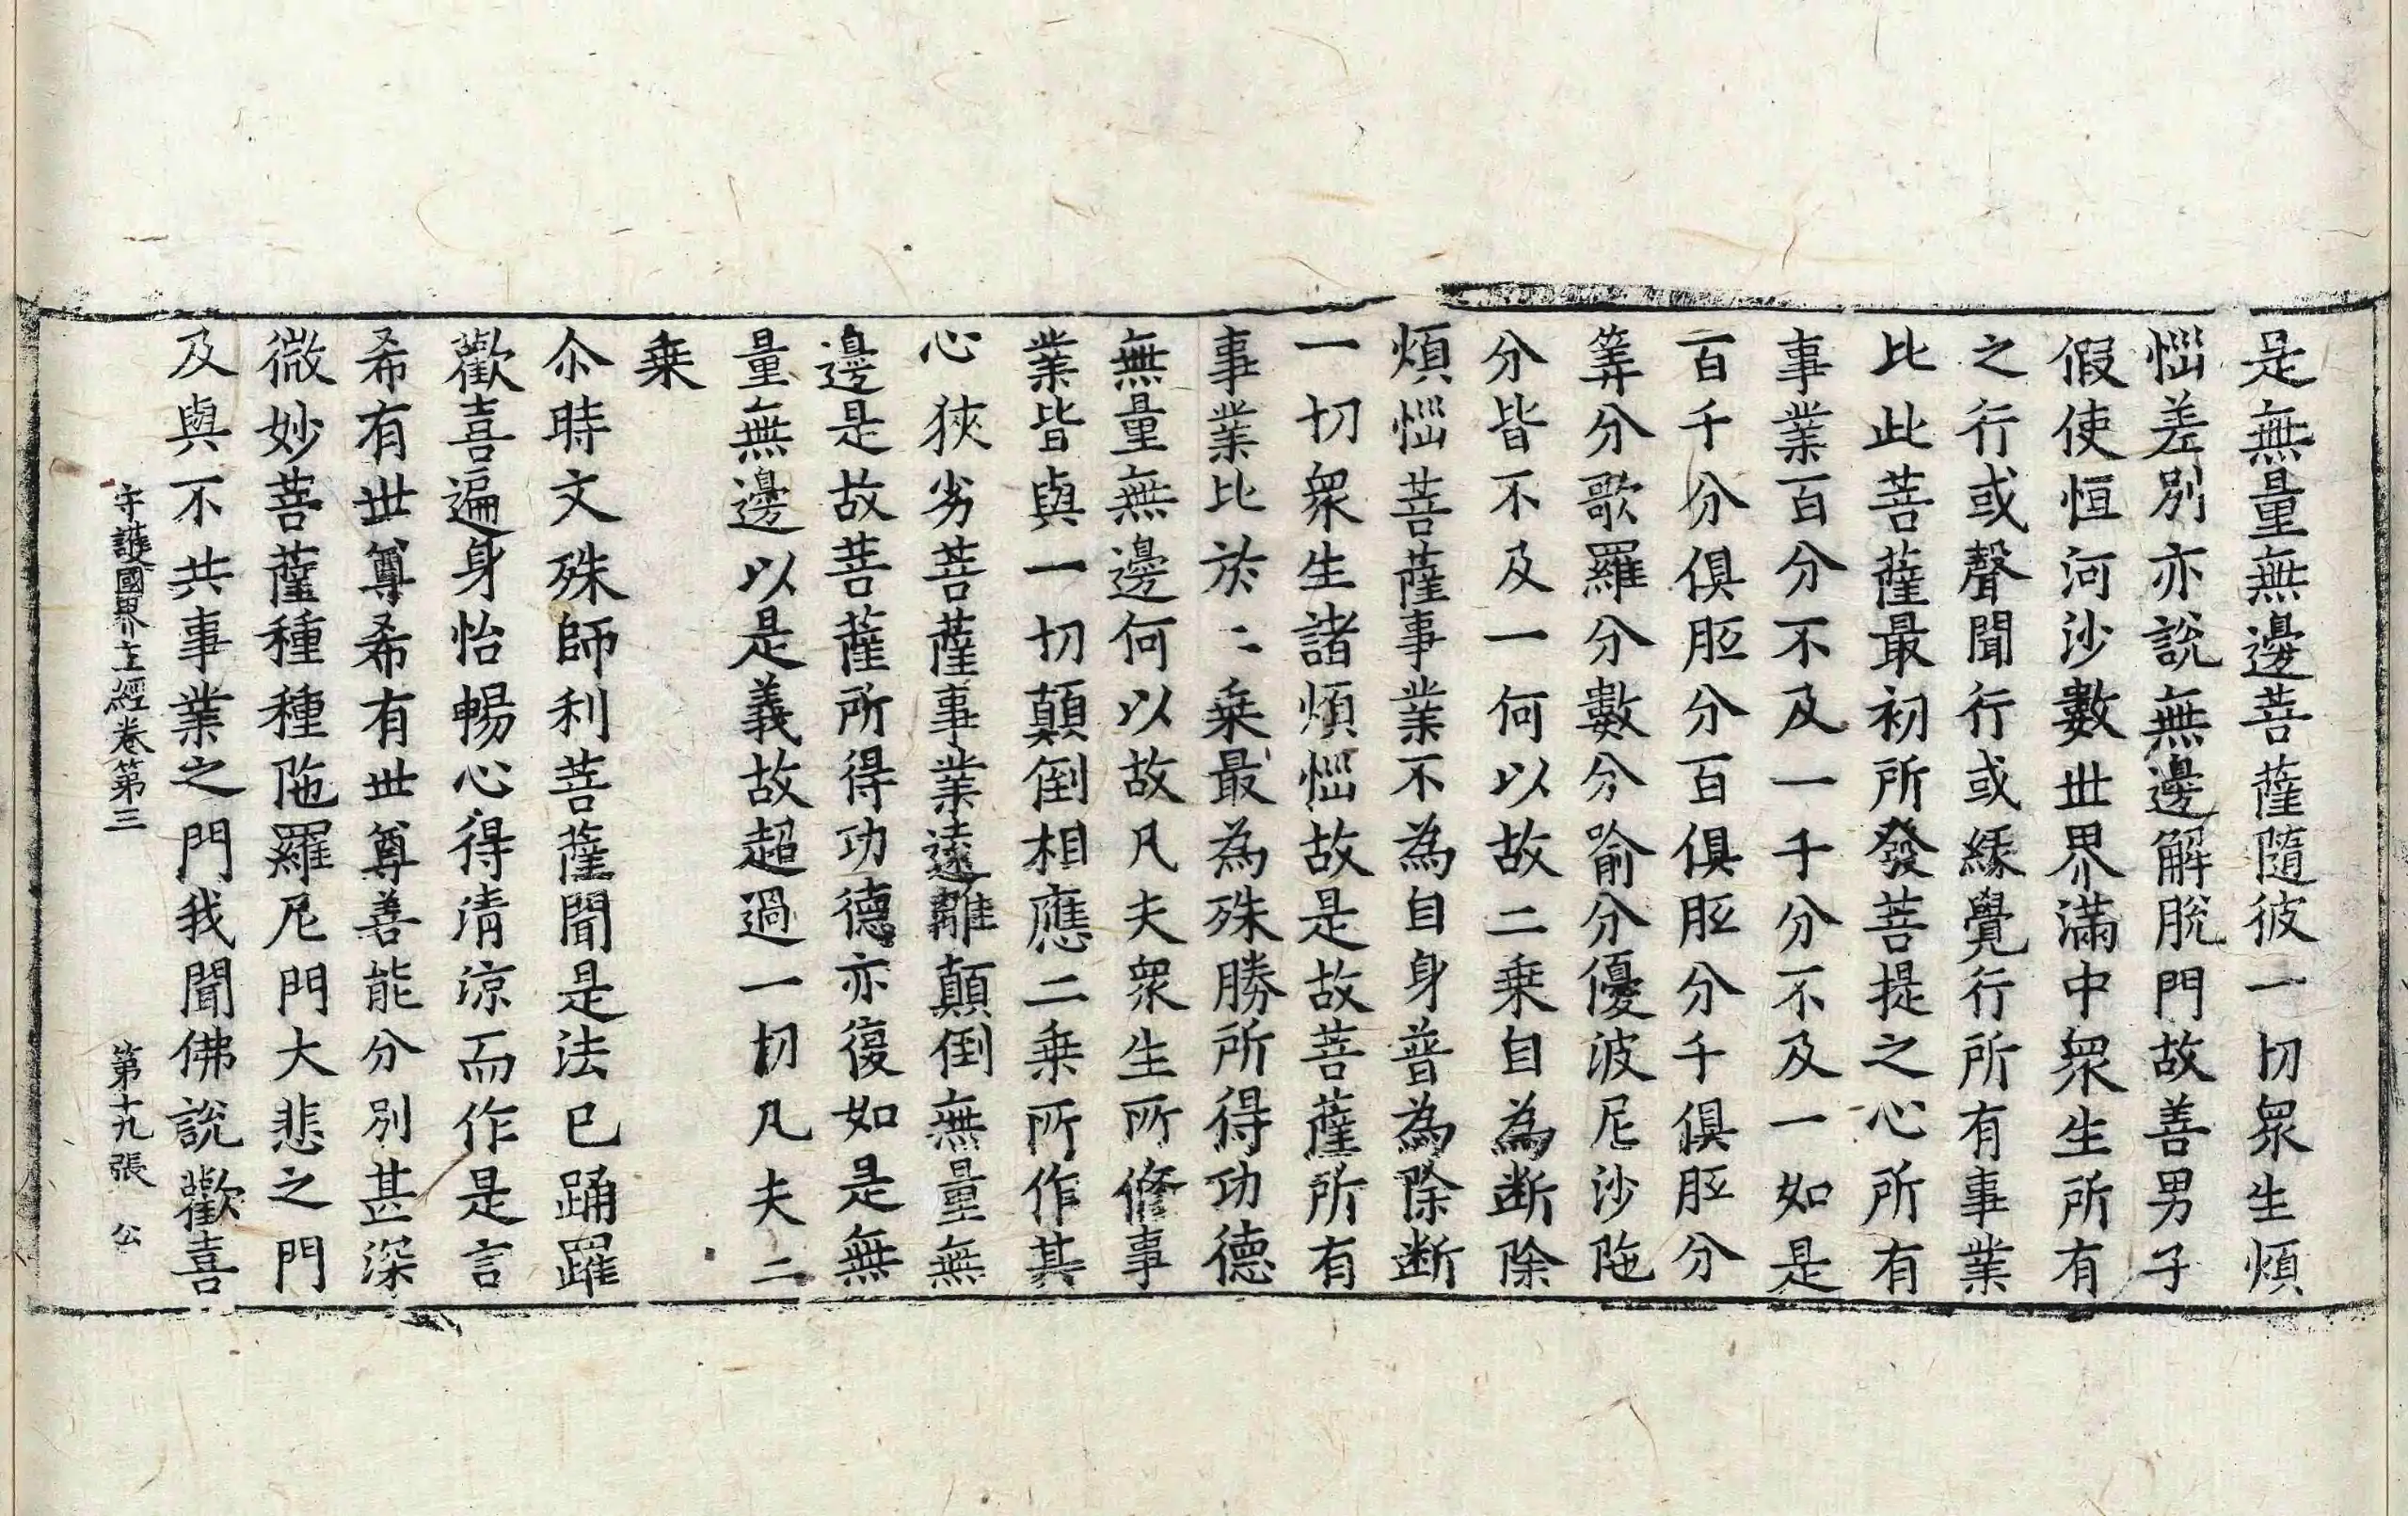 是無量無邊菩薩隨彼一切眾生煩
惱差別亦說無邊解脫門故善男子
假使恒河沙數世界滿中眾生所有
之行或聲聞行或緣覺行所有事業
比此菩薩最初所發菩提之心所有
事業百分不及一千分不及一如是
百千分俱胝分百俱胝分千俱胝分
筭分歌羅分數分喻分優波尼沙陁
分皆不及一何以故二乗自為断除
煩惱菩薩事業不為自身普為除断
一切眾生諸煩惱故是故菩薩所有
事業比於二乗最為殊勝所得功德
無量無邊何以故凡夫眾生所修事
業皆與一切顛倒相應二乗所作其
心狹劣菩薩事業遠離顛倒無量無
邊是故菩薩所得功德亦復如是無
量無邊以是義故超過一切凡夫二
乗
尒時文殊師利菩薩聞是法已踊躍
歡喜遍身怡暢心得清涼而作是言
希有世尊希有世尊善能分別甚深
微妙菩薩種種陁羅尼門大悲之門
及與不共事業之門我聞佛說歡喜
守護國界主經卷第三 第十九張 公